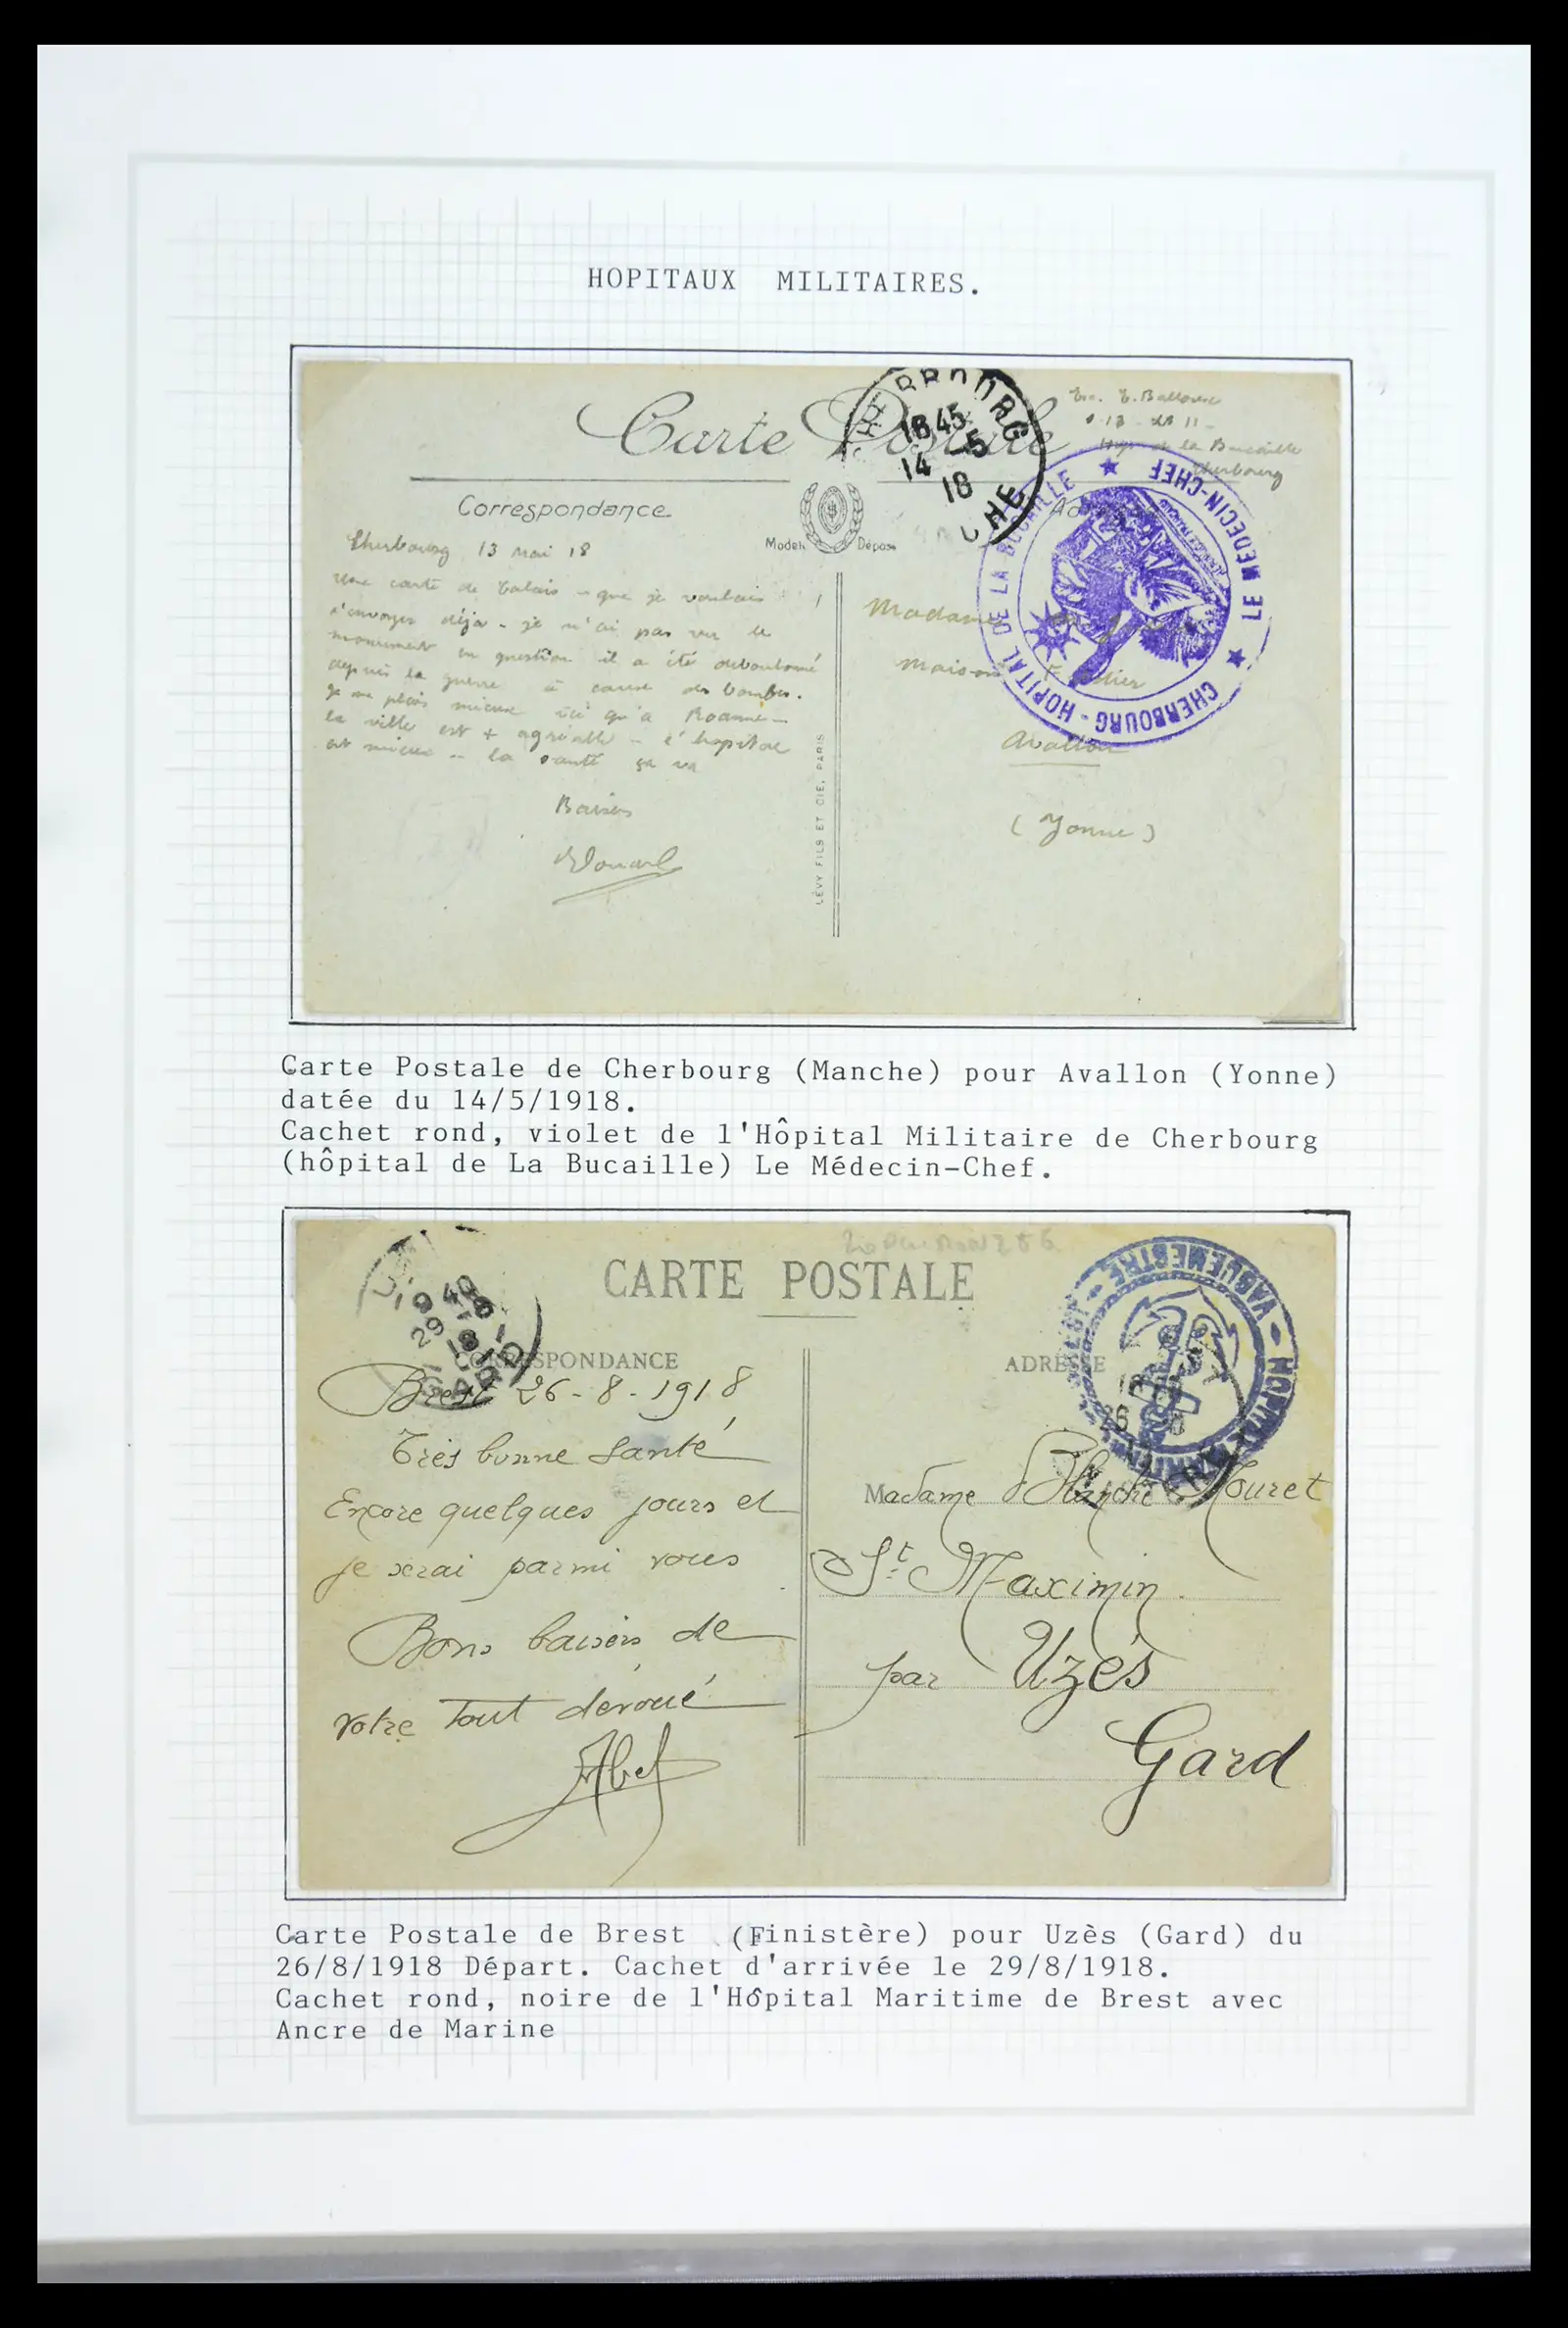 HOPITAUX MILITAIRES.
Carte Postale
CHERBOURG
18 45
14 -5
18
Correspondance
Modèle Déposé
CHERBOURG - HOPITAL DE LA BUCAILLE ★ LE MÉDECIN-CHEF ★
Cherbourg 13 mai 18
une carte de Calais - que je voulais
t'envoyer déjà - je n'ai pas vu le
monument en question il a été déboulonné
depuis la guerre à cause des bombes.
je me plais mieux ici qu'à Roanne -
la ville est + agréable - l'hopital
est mieux - la santé ça va
Baisers
Edouard
LÉVY FILS ET CIE, PARIS
Madame
Maison
Avallon
(Yonne)
Carte Postale de Cherbourg (Manche) pour Avallon (Yonne)
datée du 14/5/1918.
Cachet rond, violet de l'Hôpital Militaire de Cherbourg
(hôpital de La Bucaille) Le Médecin-Chef.
CARTE POSTALE
9 40
29 -8
18
GARD
CORRESPONDANCE
ADRESSE
VAGUEMESTRE - HOPITAL MARITIME
Brest 26-8-1918
Très bonne Santé
Encore quelques jours et
je serai parmi vous
Bons baisers de
votre tout dévoué
Abel
Madame Blanche Mouret
St Maximin
par Uzès
Gard
Carte Postale de Brest (Finistère) pour Uzès (Gard) du
26/8/1918 Départ. Cachet d'arrivée le 29/8/1918.
Cachet rond, noire de l'Hôpital Maritime de Brest avec
Ancre de Marine